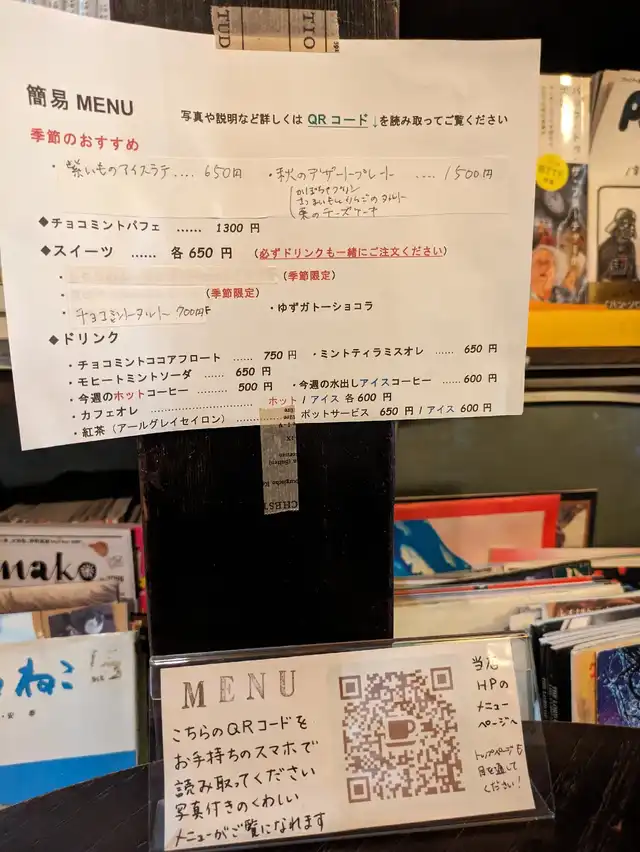 TUD
TIO
簡易 MENU
写真や説明など詳しくは QR コード ↓を読み取ってご覧ください
季節のおすすめ
・紫いものアイスラテ.... 650円
・秋のデザートプレート .... 1500円
かぼちゃプリン
さつまいもとりんごのタルト
栗のチーズケーキ
◆チョコミントパフェ ...... 1300 円
◆スイーツ ...... 各 650 円 (必ずドリンクも一緒にご注文ください)
・ (季節限定)
・ (季節限定)
・チョコミントタルト 700円
・ゆずガトーショコラ
◆ドリンク
・チョコミントココアフロート ...... 750 円
・ミントティラミスオレ ...... 650 円
・モヒートミントソーダ ...... 650 円
・今週のホットコーヒー ...... 500 円
・今週の水出しアイスコーヒー ......600 円
・カフェオレ ...................... ホット / アイス 各 600 円
・紅茶（アールグレイセイロン） ............ ポットサービス 650 円 / アイス 600 円
CHBST
mako
ねこ
MENU
こちらのQRコードを
お手持ちのスマホで
読み取ってください
写真付きのくわしい
メニューがご覧になれます
当店
HPの
メニュー
ページへ
トップページも
目を通して
ください!